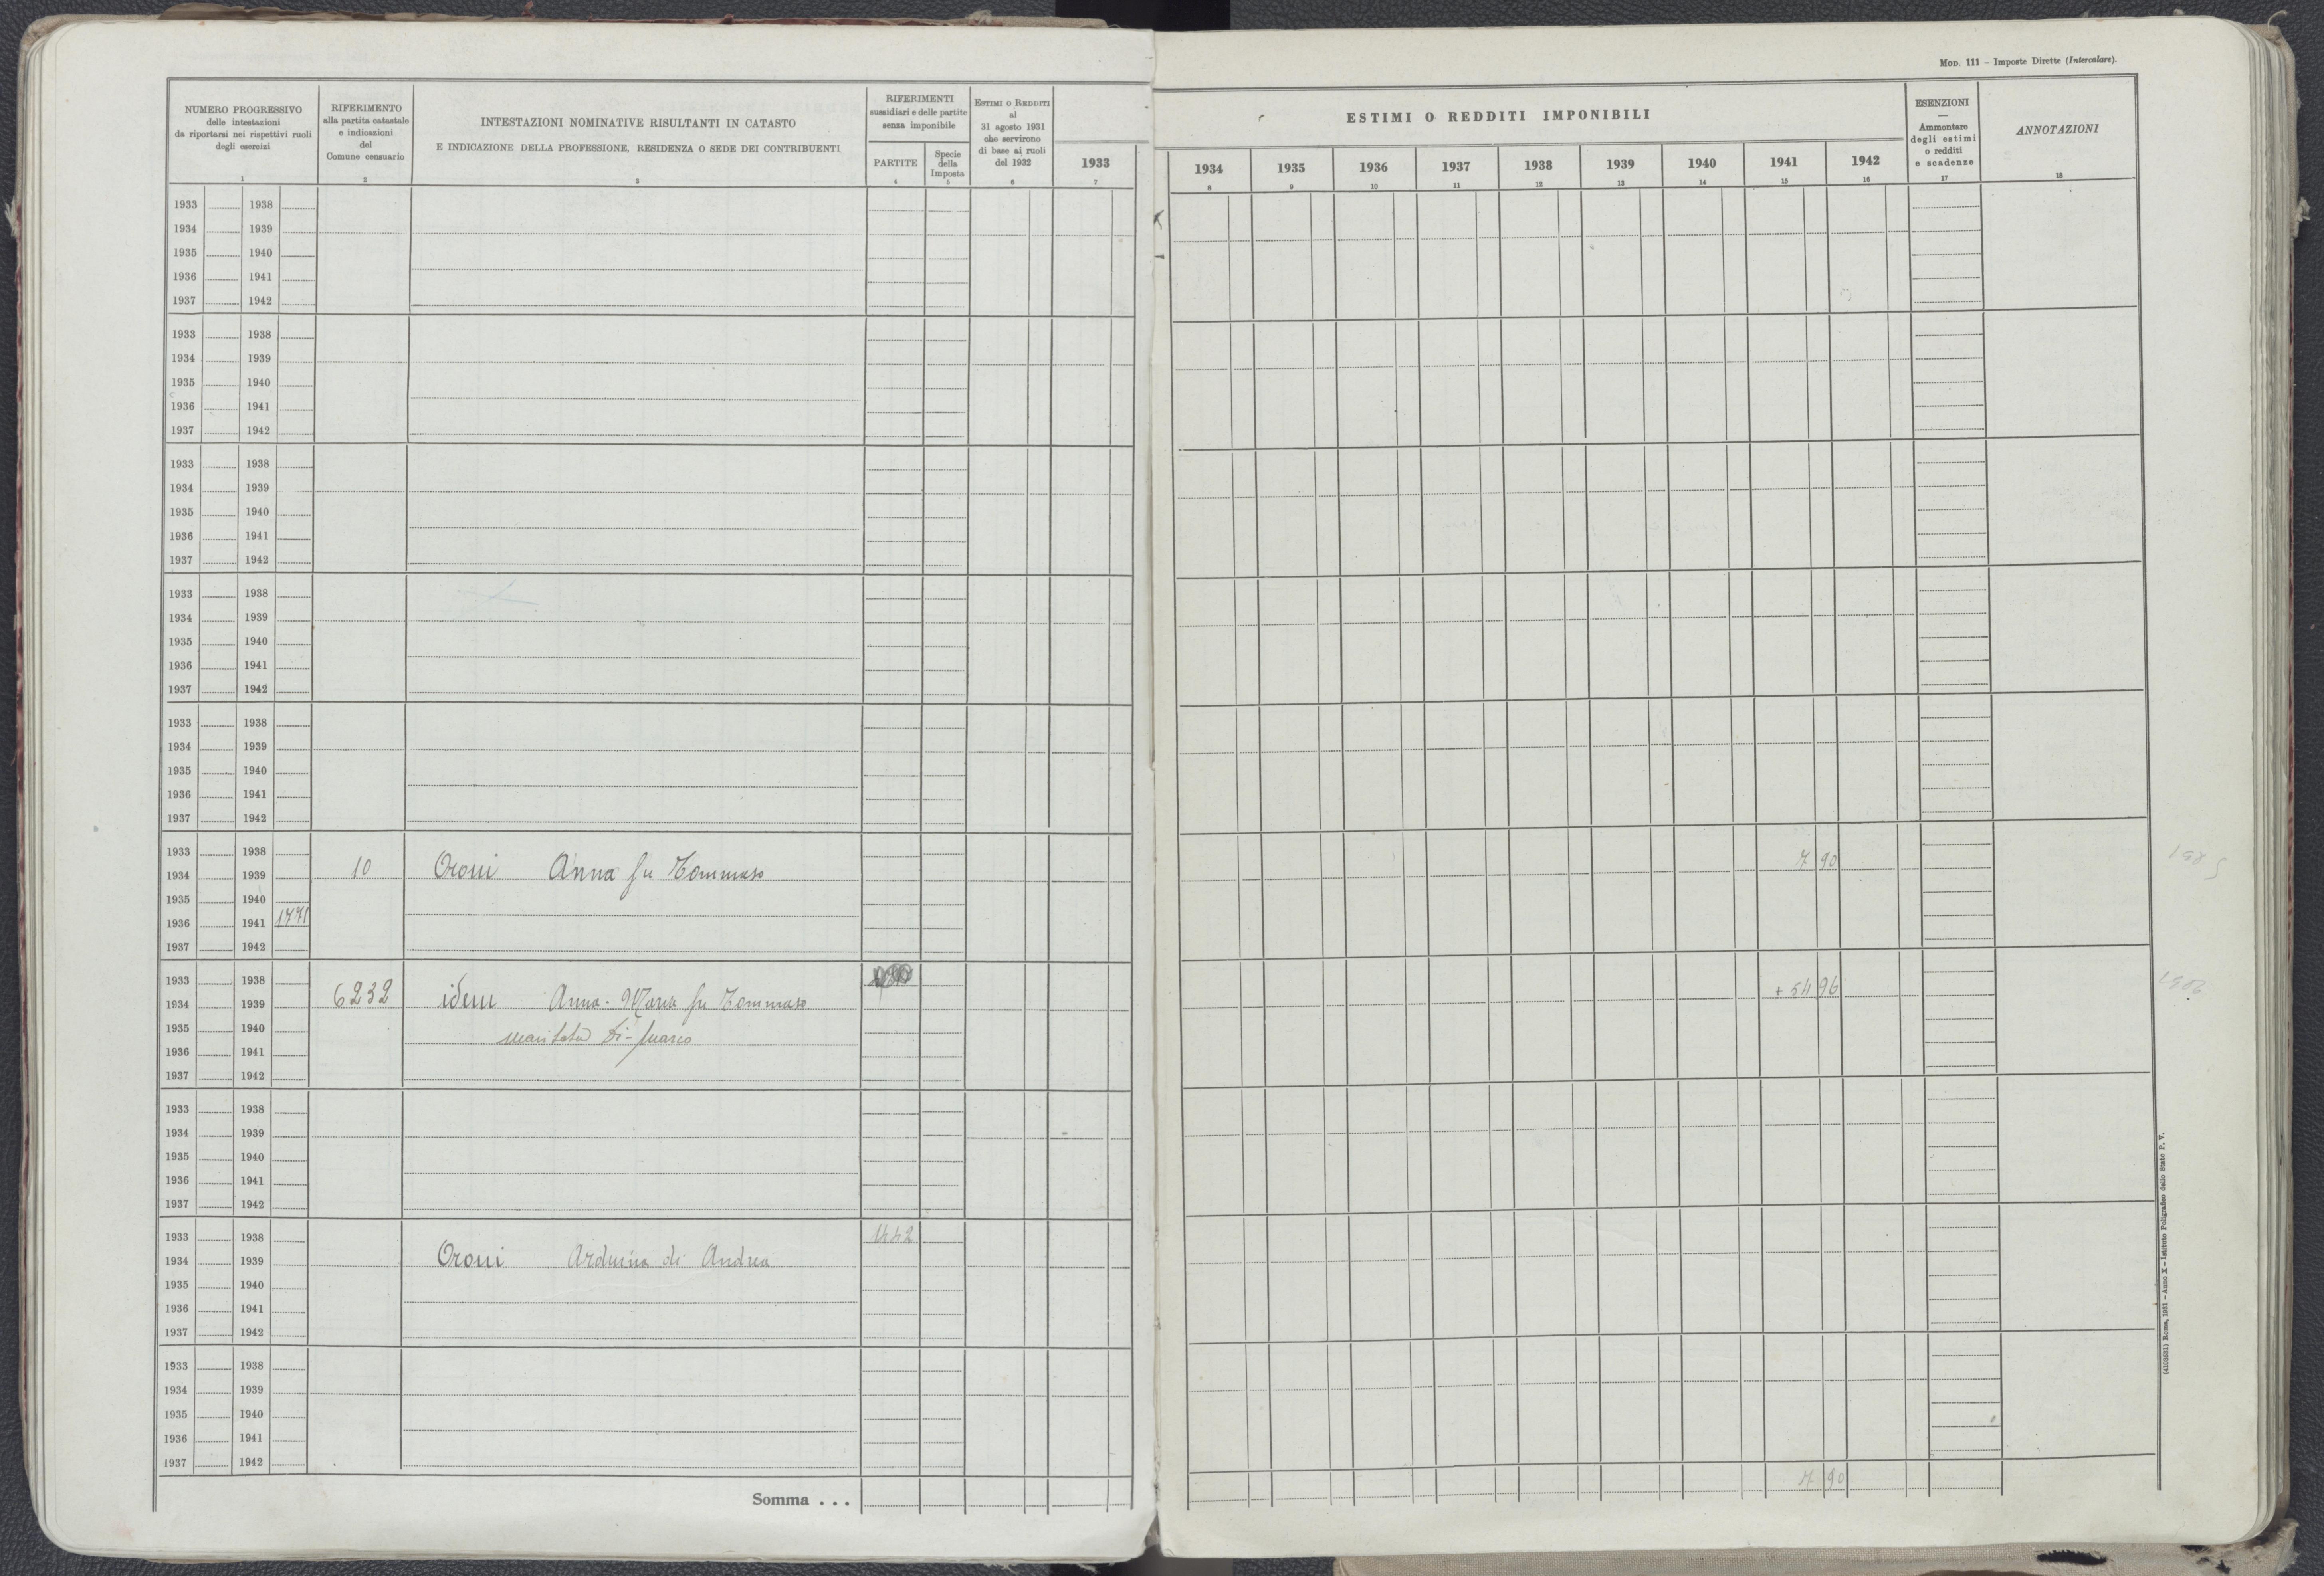 Mod. 111 – Imposte Dirette (Intercalare).
NUMERO PROGRESSIVO
delle intestazioni
da riportarsi nei rispettivi ruoli
degli esercizi
1
RIFERIMENTO
alla partita catastale
e indicazioni
del
Comune censuario
2
INTESTAZIONI NOMINATIVE RISULTANTI IN CATASTO
E INDICAZIONE DELLA PROFESSIONE, RESIDENZA O SEDE DEI CONTRIBUENTI
3
RIFERIMENTI
sussidiari e delle partite
senza imponibile
PARTITE
4
Specie
della
Imposta
5
Estimi o Redditi
al
31 agosto 1931
che servirono
di base ai ruoli
del 1932
6
1933
7
ESTIMI O REDDITI IMPONIBILI
1934 1935 1936 1937 1938 1939 1940 1941 1942
8 9 10 11 12 13 14 15 16
ESENZIONI
—
Ammontare
degli estimi
o redditi
e scadenze
17
ANNOTAZIONI
18
1933 1938
1934 1939
1935 1940
1936 1941
1937 1942
1933 1938
1934 1939
1935 1940
1936 1941
1937 1942
1933 1938
1934 1939
1935 1940
1936 1941
1937 1942
1933 1938
1934 1939
1935 1940
1936 1941
1937 1942
1933 1938
1934 1939
1935 1940
1936 1941
1937 1942
1933 1938
1934 1939 10 Oroni Anna fu Tommaso 7 90
1935 1940
1936 1941 1771
1937 1942
1933 1938
1934 1939 6232 idem Anna-Maria fu Tommaso + 54 96
1935 1940 maritata
1936 1941
1937 1942
1933 1938
1934 1939
1935 1940
1936 1941
1937 1942
1933 1938 1442
1934 1939 Oroni Arduina di Andrea
1935 1940
1936 1941
1937 1942
1933 1938
1934 1939
1935 1940
1936 1941
1937 1942
Somma . . . 7 90
(4103531) Roma, 1931 – Anno X – Istituto Poligrafico dello Stato P. V.